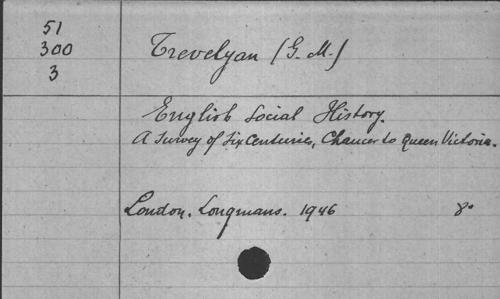 51
300
3
Trevelyan (G. M.)
English Social History.
A Survey of Six Centuries, Chaucer to Queen Victoria.
London. Longmans. 1946 8°